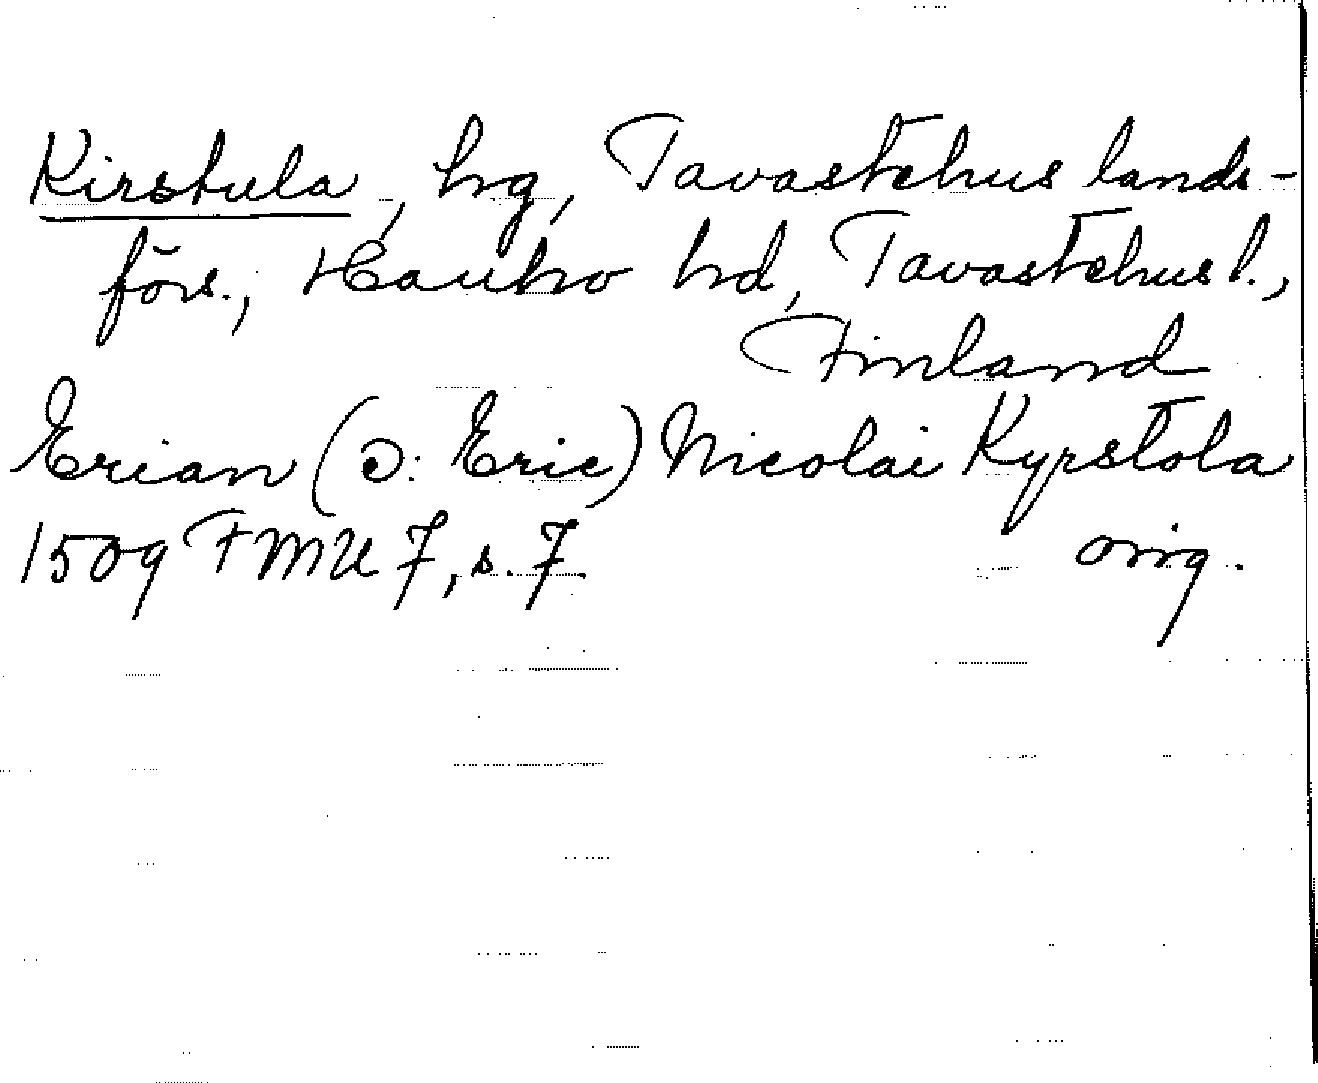 Kirstula, hrg, Tavastehus lands-
förs., Hauho hd, Tavastehus l.,
Finland
Erian (ɔ: Eric) Nicolai Kyrstola
1509 FMU 7, s. 7. orig.